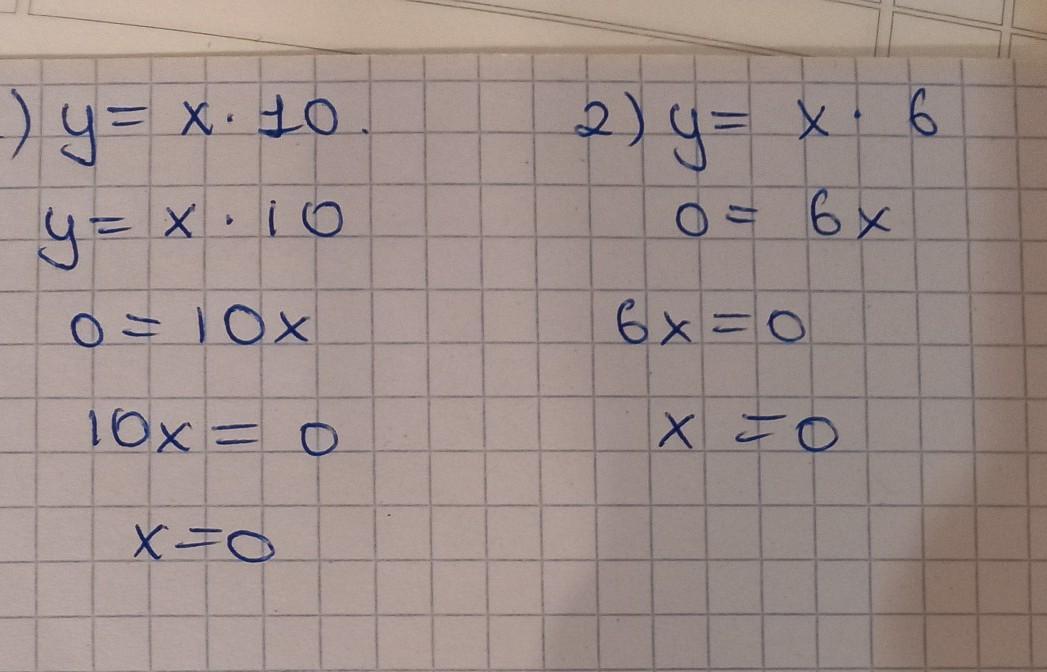 .) y = x · 10.
y = x · 10
0 = 10x
10x = 0
x = 0
2) y = x · 6
0 = 6x
6x = 0
x = 0